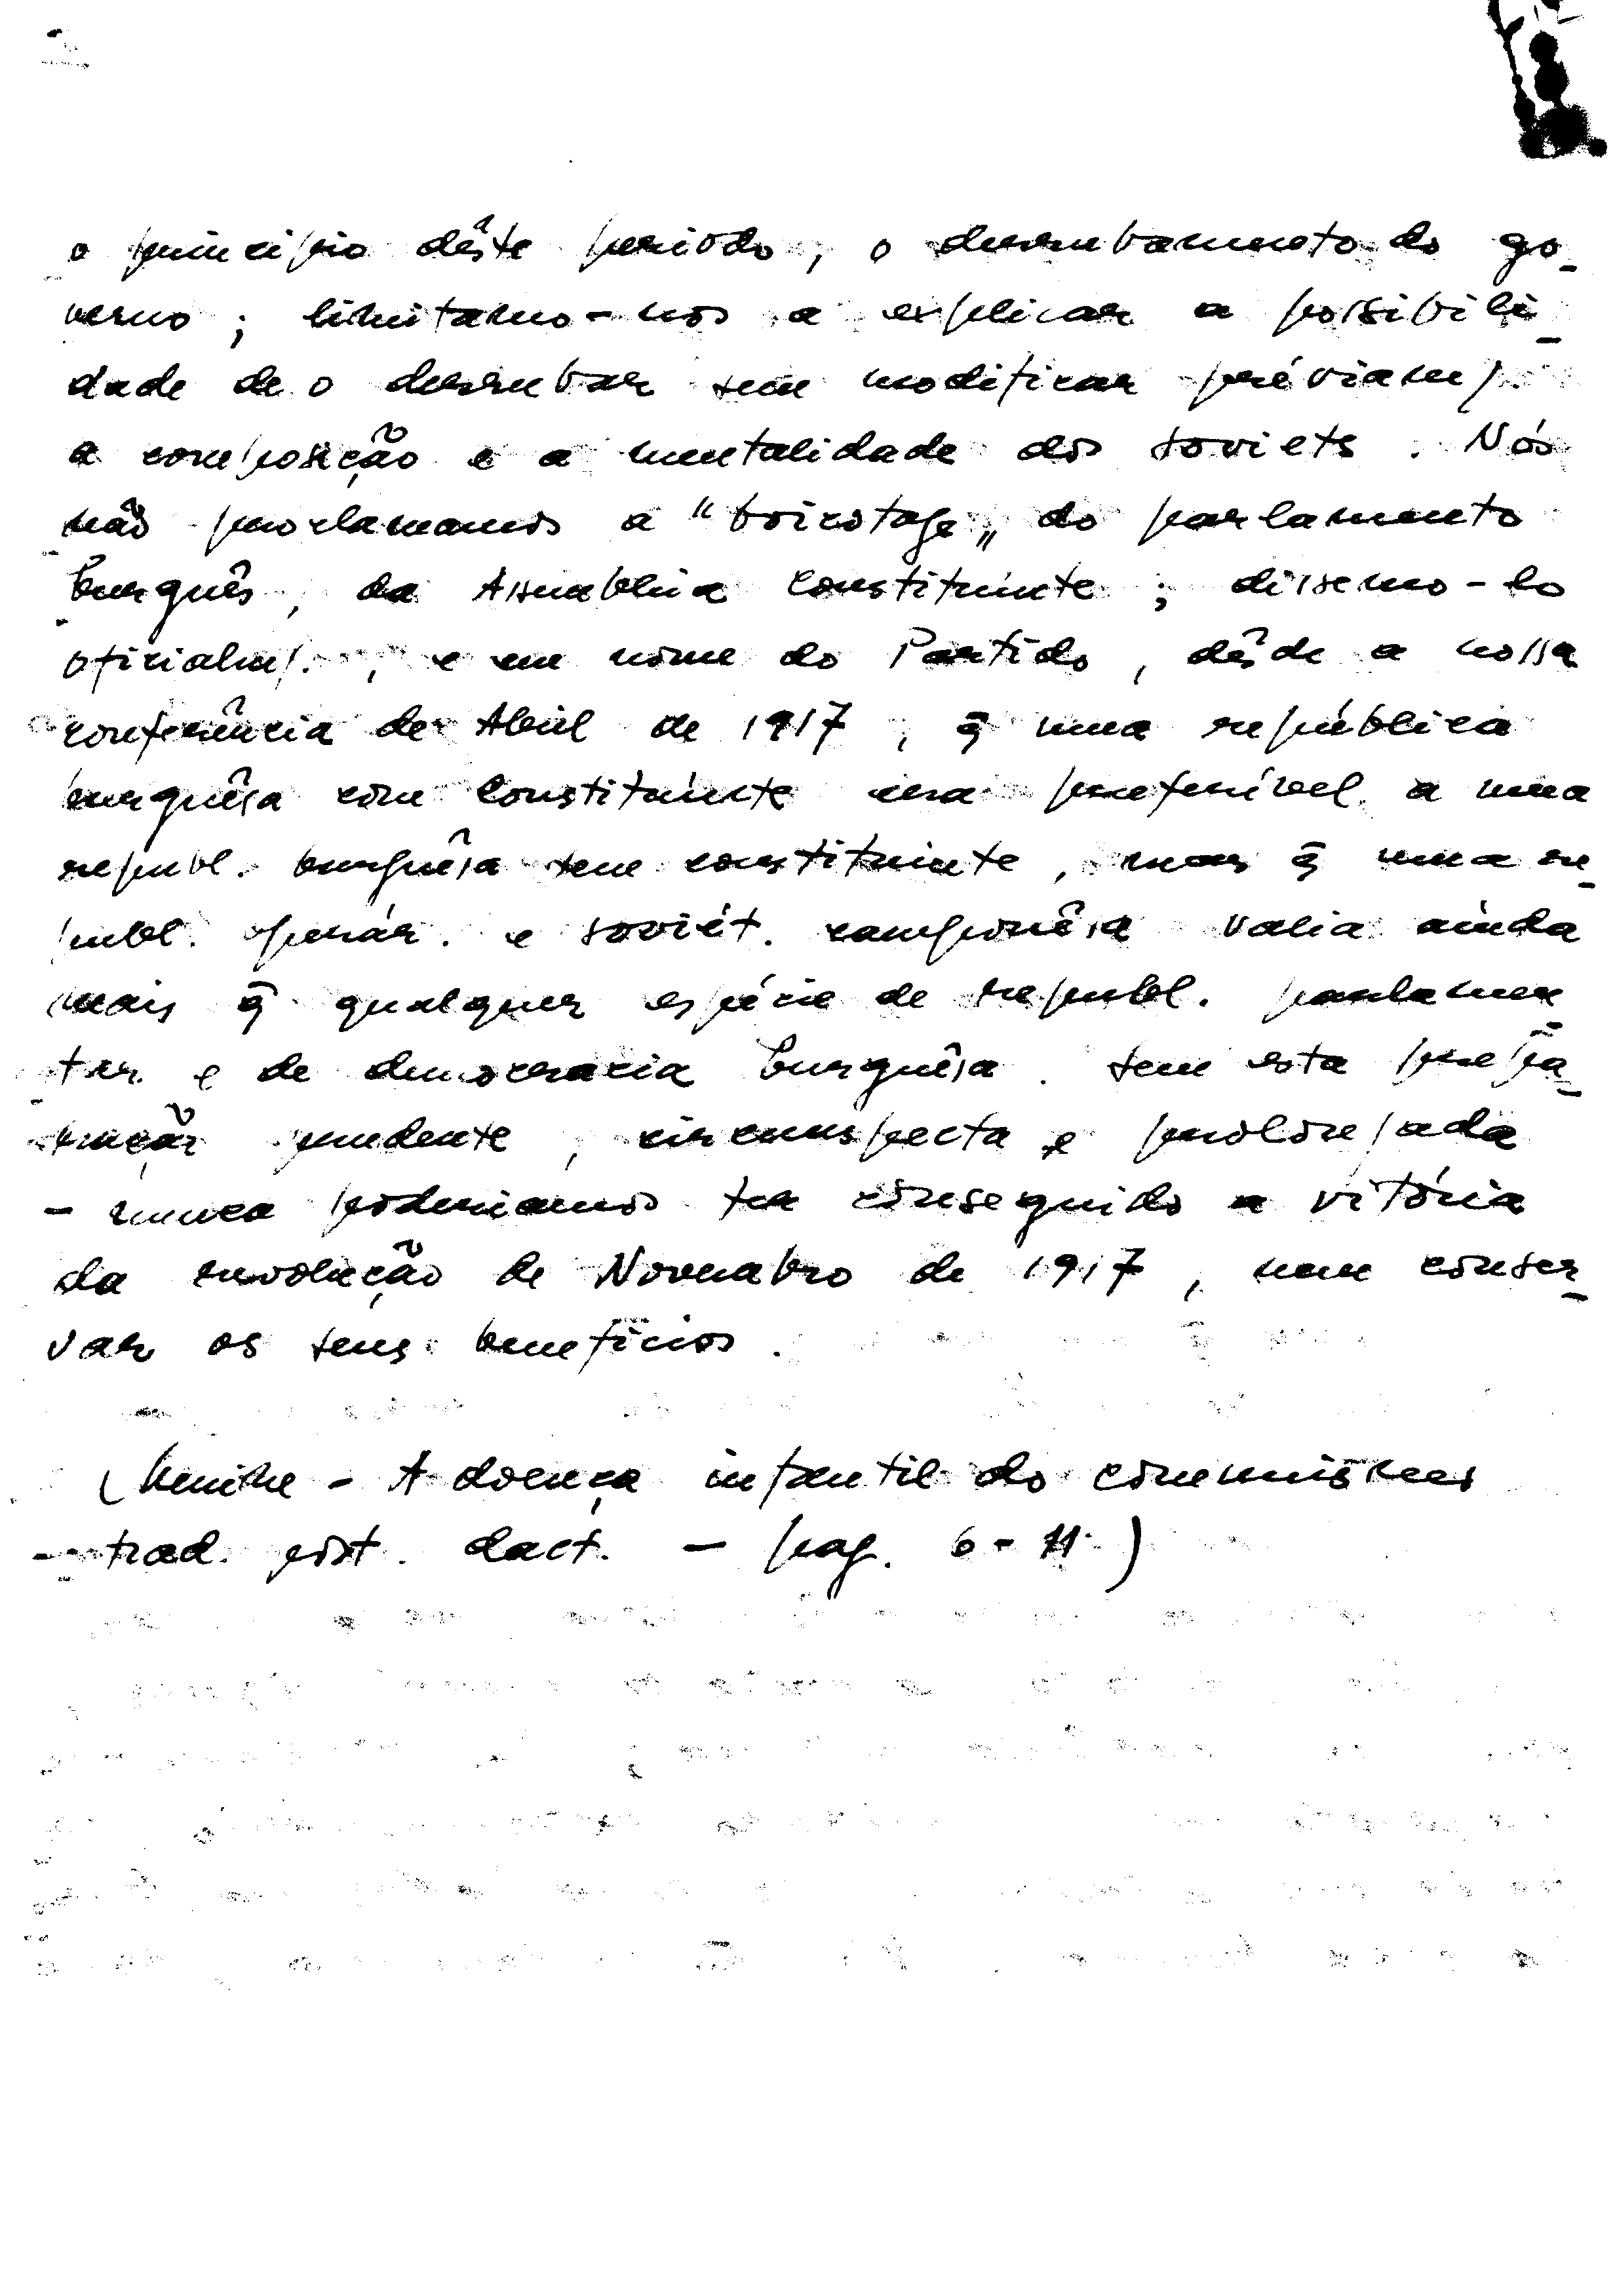 o princípio dêste periodo, o derrubamento do go-
verno; limitamo-nos a explicar a possibili-
dade de o derrubar sem modificar préviam/.
a composição e a mentalidade dos soviets. Nós
não proclamamos a "boicotage" do parlamento
burguês, da Assembleia Constituinte; dissemo-lo
oficialm/., e em nome do Partido, dêsde a nossa
conferência de Abril de 1917, q̃ uma república
burguêsa com Constituínte era preferível a uma
republ. burguêsa sem constituinte, mas q̃ uma re-
publ. operár. e soviét. camponêsa valia ainda
mais q̃ qualquer espécie de republ. parlamen-
tar e de democracia burguêsa. Sem esta prepa-
ração prudente, circunspecta e prolongada
- nunca poderiamos ter conseguido a vitória
da revolução de Novembro de 1917, nem conser-
var os seus benefícios.
(Lenine - A doença infantil do comunismo
- trad. port. dact. - pag. 6-11)